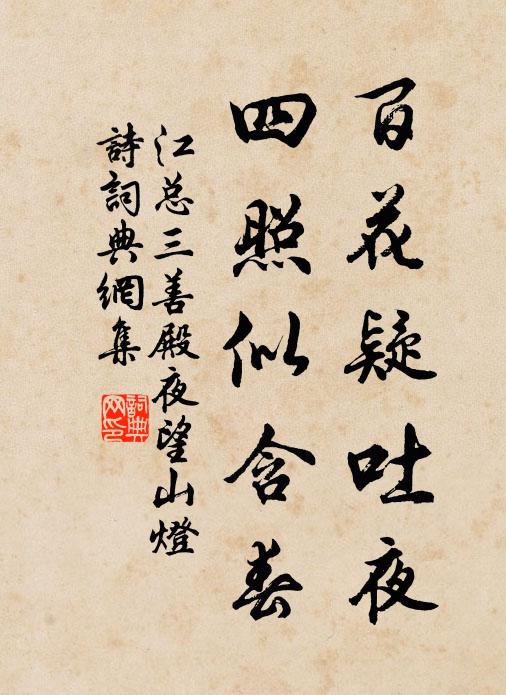 百花疑吐夜
四照似含春
江总三善殿夜望山燈
詩詞典網集
詞典網印